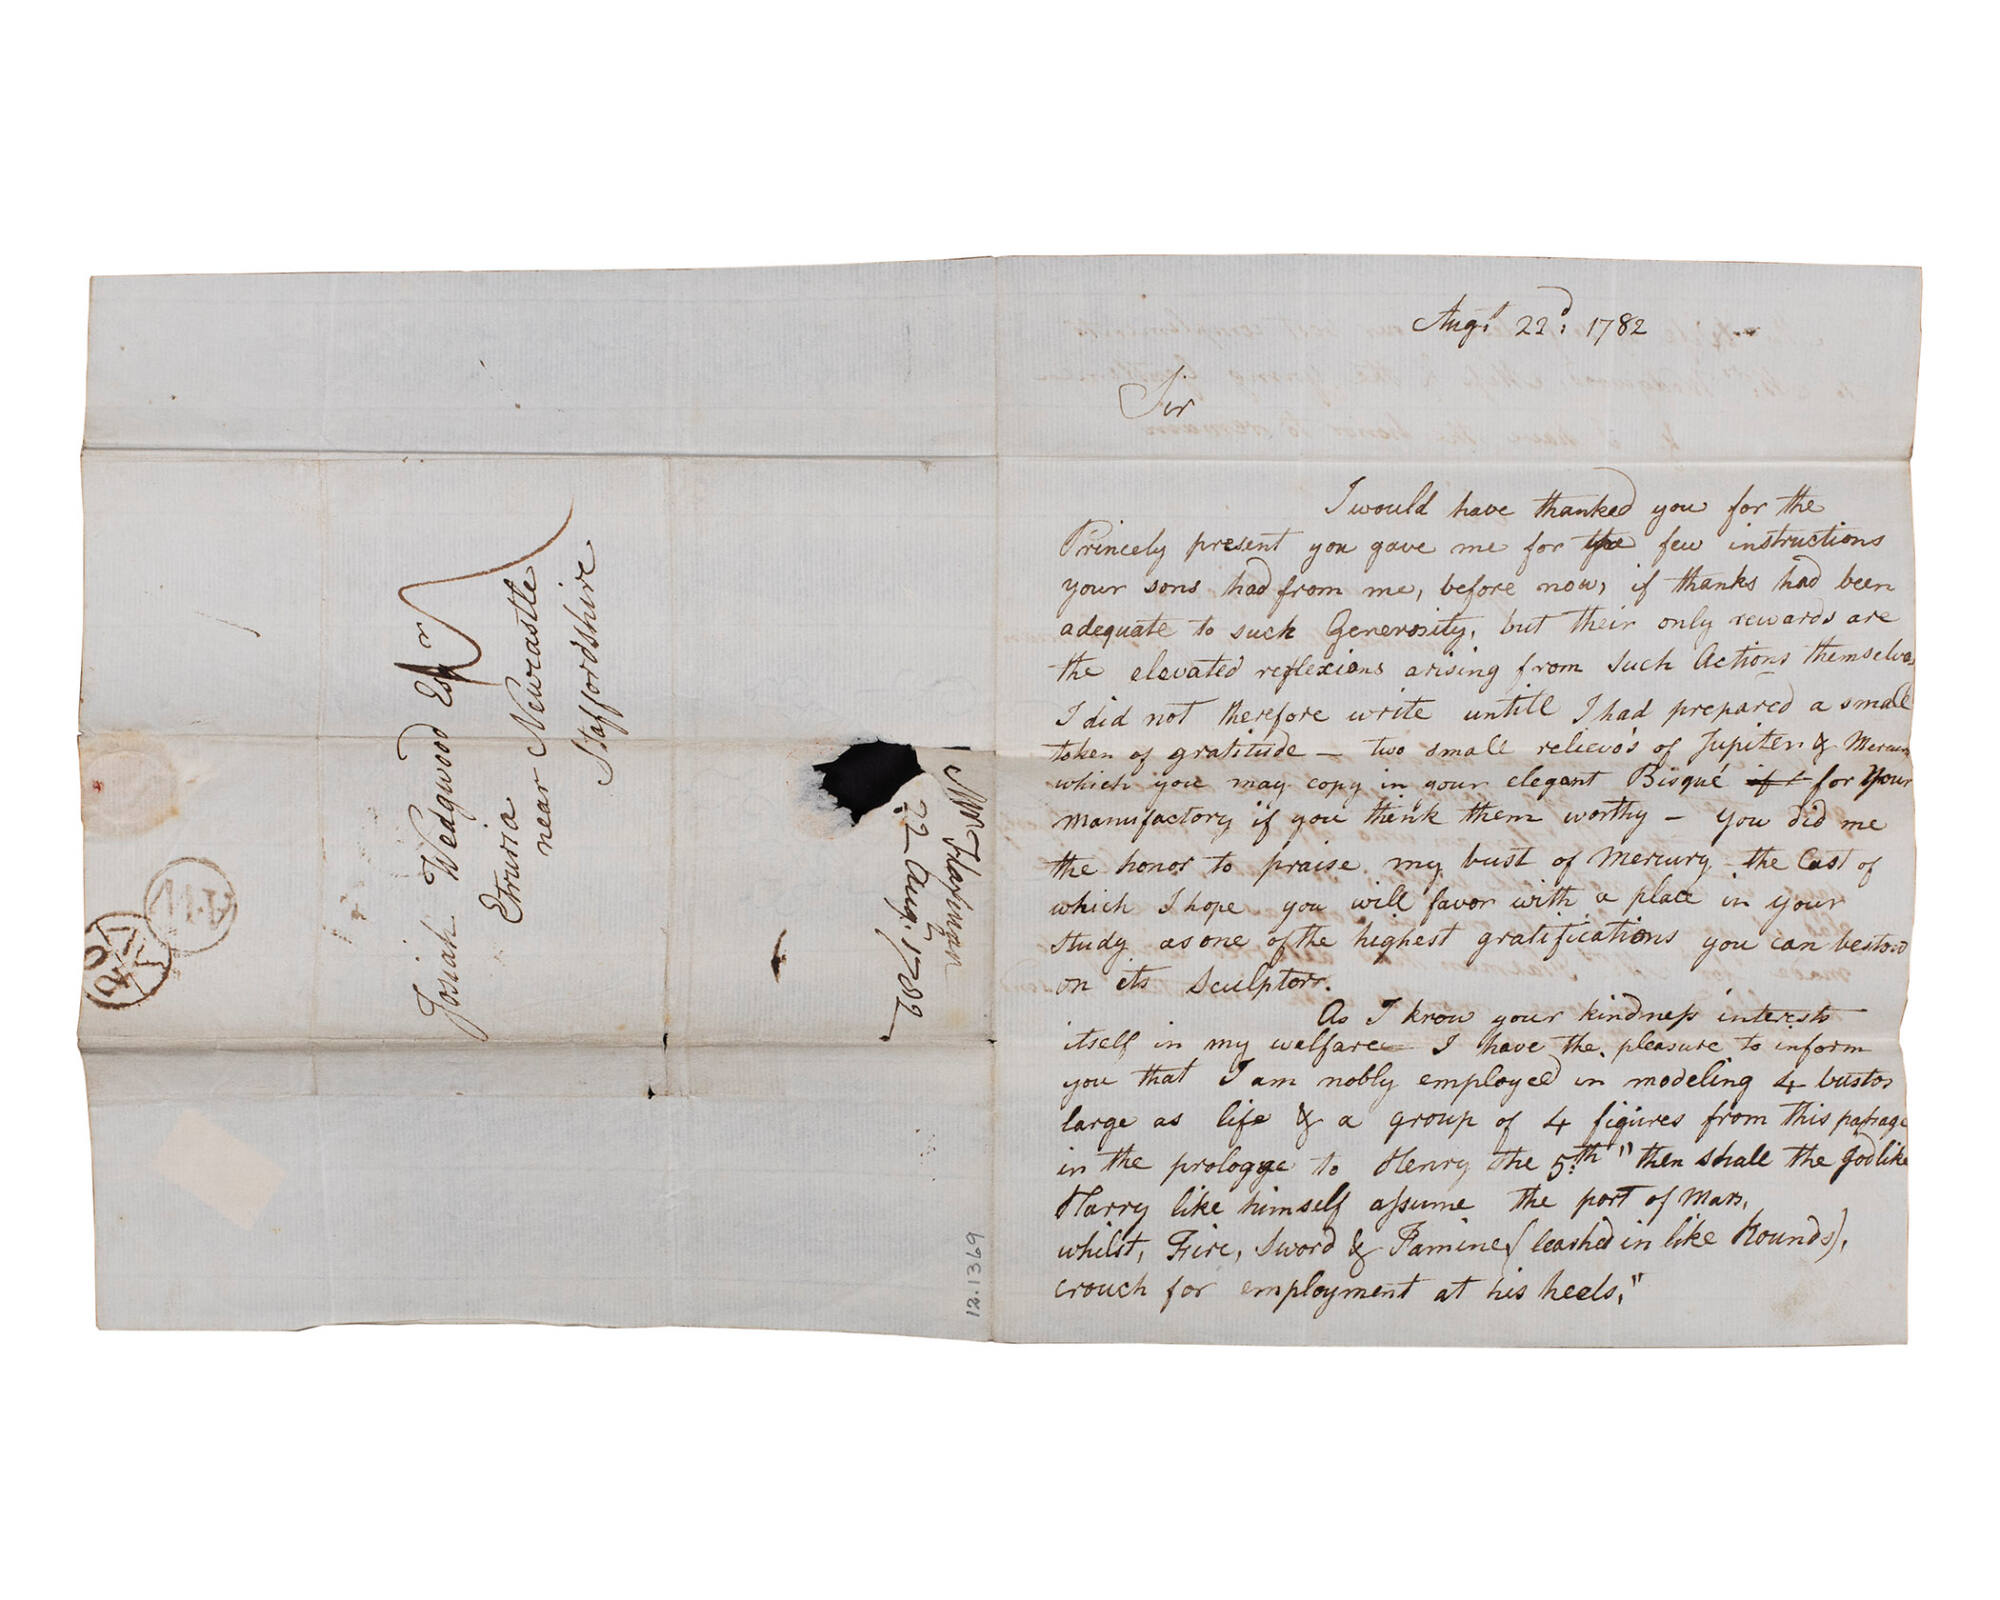 Josiah Wedgwood Esqr
Etruria
near Newcastle
Staffordshire
Mr Flaxman
22 Aug. 1782
12.1369
Augt. 22d: 1782
Sir
I would have thanked you for the
Princely present you gave me for the few instructions
your sons had from me, before now, if thanks had been
adequate to such Generosity, but their only rewards are
the elevated reflexions arising from such Actions themselves
I did not therefore write untill I had prepared a small
token of gratitude — two small relievo's of Jupiter & Mercury
which you may copy in your elegant Bisqué for Your
manufactory if you think them worthy — You did me
the honor to praise my bust of Mercury the Cast of
which I hope you will favor with a place in your
study as one of the highest gratifications you can bestow
on its Sculptor.
As I know your kindness interests
itself in my welfare I have the pleasure to inform
you that I am nobly employed in modeling 4 bustos
large as life & a group of 4 figures from this passage
in the prologue to Henry the 5:th "then shall the Godlike
Harry like himself assume the port of Mars,
whilst, Fire, Sword & Famine, (leashed in like Hounds),
crouch for employment at his heels,"